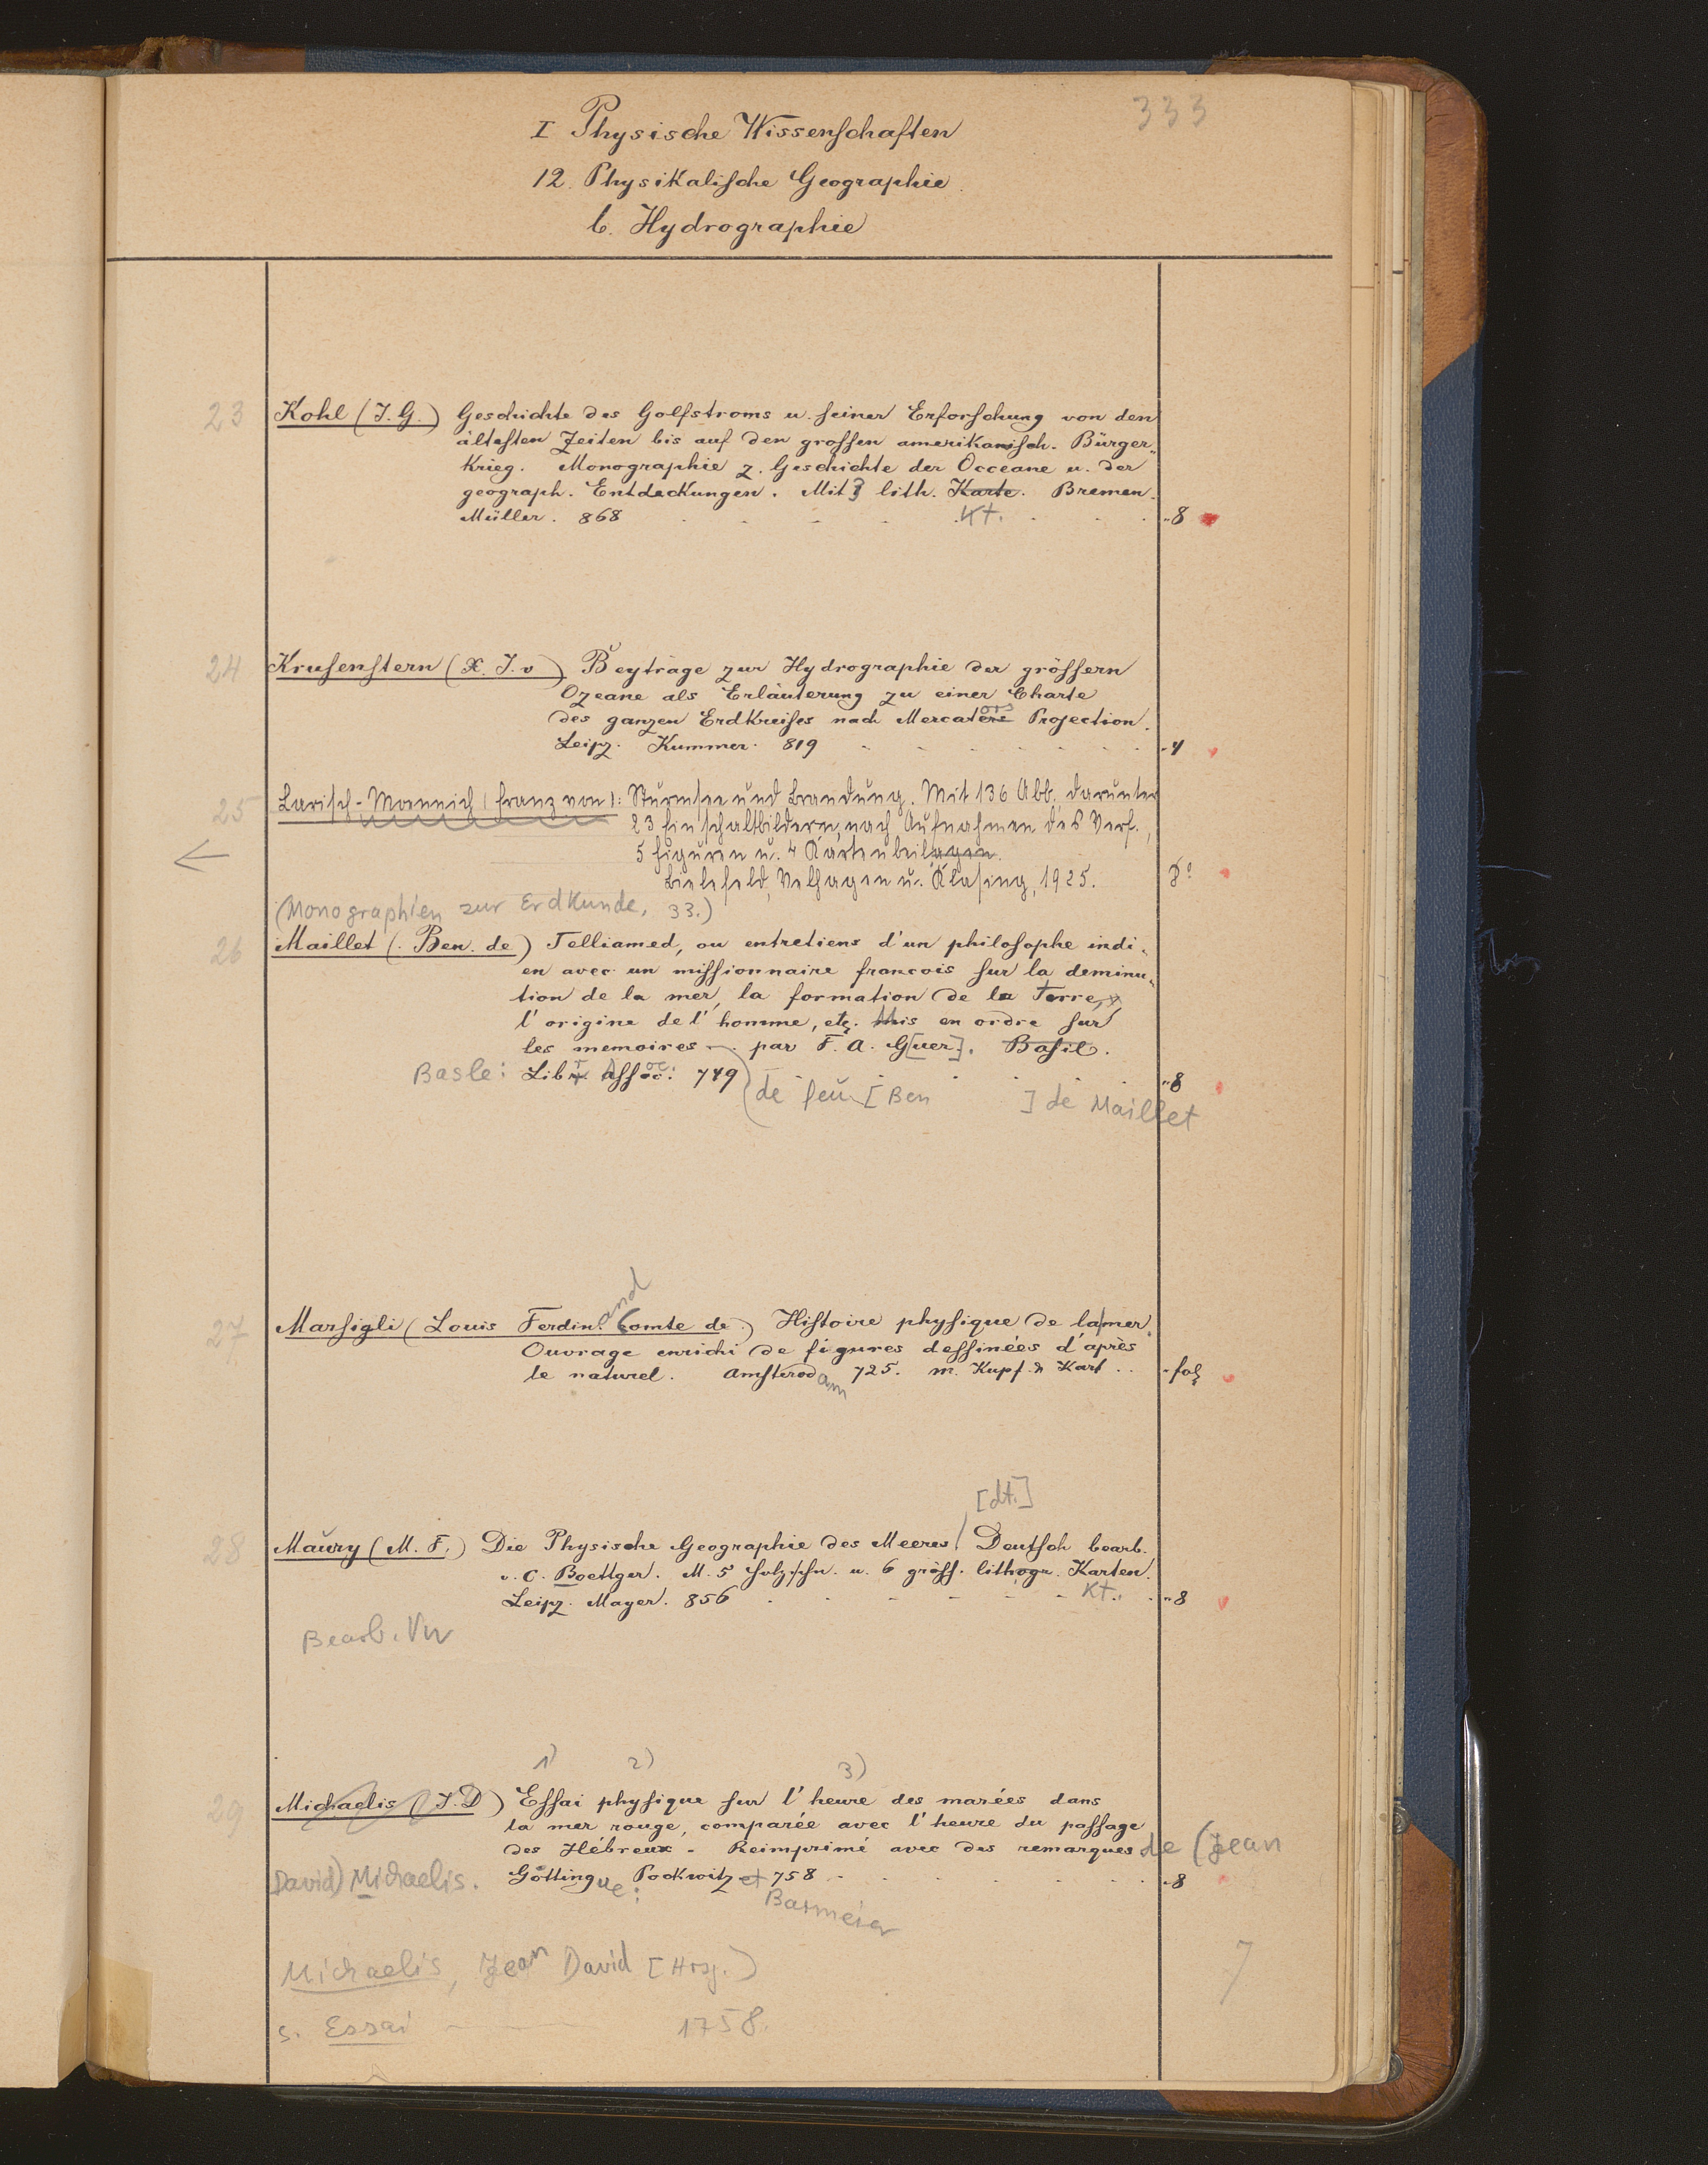 333
I Physische Wissenschaften
12. Physikalische Geographie.
b. Hydrographie
23 Kohl (J. G.) Geschichte des Golfstroms u. seiner Erforschung von den
ältesten Zeiten bis auf den grossen amerikanisch. Bürger-
krieg. Monographie z. Geschichte der Occeane u. der
geograph. Entdeckungen. Mit 3 lith. Karte. Bremen.
Müller. 868 Kt. 8
24 Krusenstern (X. J. v) Beyträge zur Hydrographie der grössern
Ozeane als Erläuterung zu einer Charte
des ganzen Erdkreises nach Mercators Projection.
Leipz. Kummer. 819 4
25 Larisch-Moennich (Franz von): Sturmsee und Brandung. Mit 136 Abb., darunter
23 Einschaltbildern, nach Aufnahmen des Verf.,
5 Figuren u. 4 Kartenbeilagen.
Bielefeld, Velhagen u. Klasing, 1925. 8°
(Monographien zur Erdkunde, 33.)
26 Maillet (Ben. de) Telliamed, ou entretiens d'un philosophe indi-
en avec un missionnaire francois sur la deminu-
tion de la mer, la formation de la Terre,
l'origine de l'homme, etc. Mis en ordre sur
les memoires — par F. A. G[uer]. Basil.
Basle: Libr. Assoc. 749 8
de feu [Ben ] de Maillet
27 Marsigli (Louis Ferdinand Comte de) Histoire physique de la mer.
Ouvrage enrichi de figures dessinées d'après
le naturel. Amsterdam 725. m. Kupf. & Kart .. fol
[dt.]
28 Maury (M. F.) Die Physische Geographie des Meeres. Deutsch bearb.
v. C. Boettger. M. 5 Holzschn. u. 6 gröss. lithogr. Karten.
Leipz. Mayer. 856 Kt. 8
Bearb. Vw
1) 2) 3)
29 Michaelis (J. D) Essai physique sur l'heure des marées dans
la mer rouge, comparée avec l'heure du passage
des Hébreux - Reimprimé avec des remarques de (Jean
David) Michaelis. Göttingue: Pockwitz et 758 8
Barmeier
Michaelis, Jean David [Hrsg.)
7
s. Essai 1758.